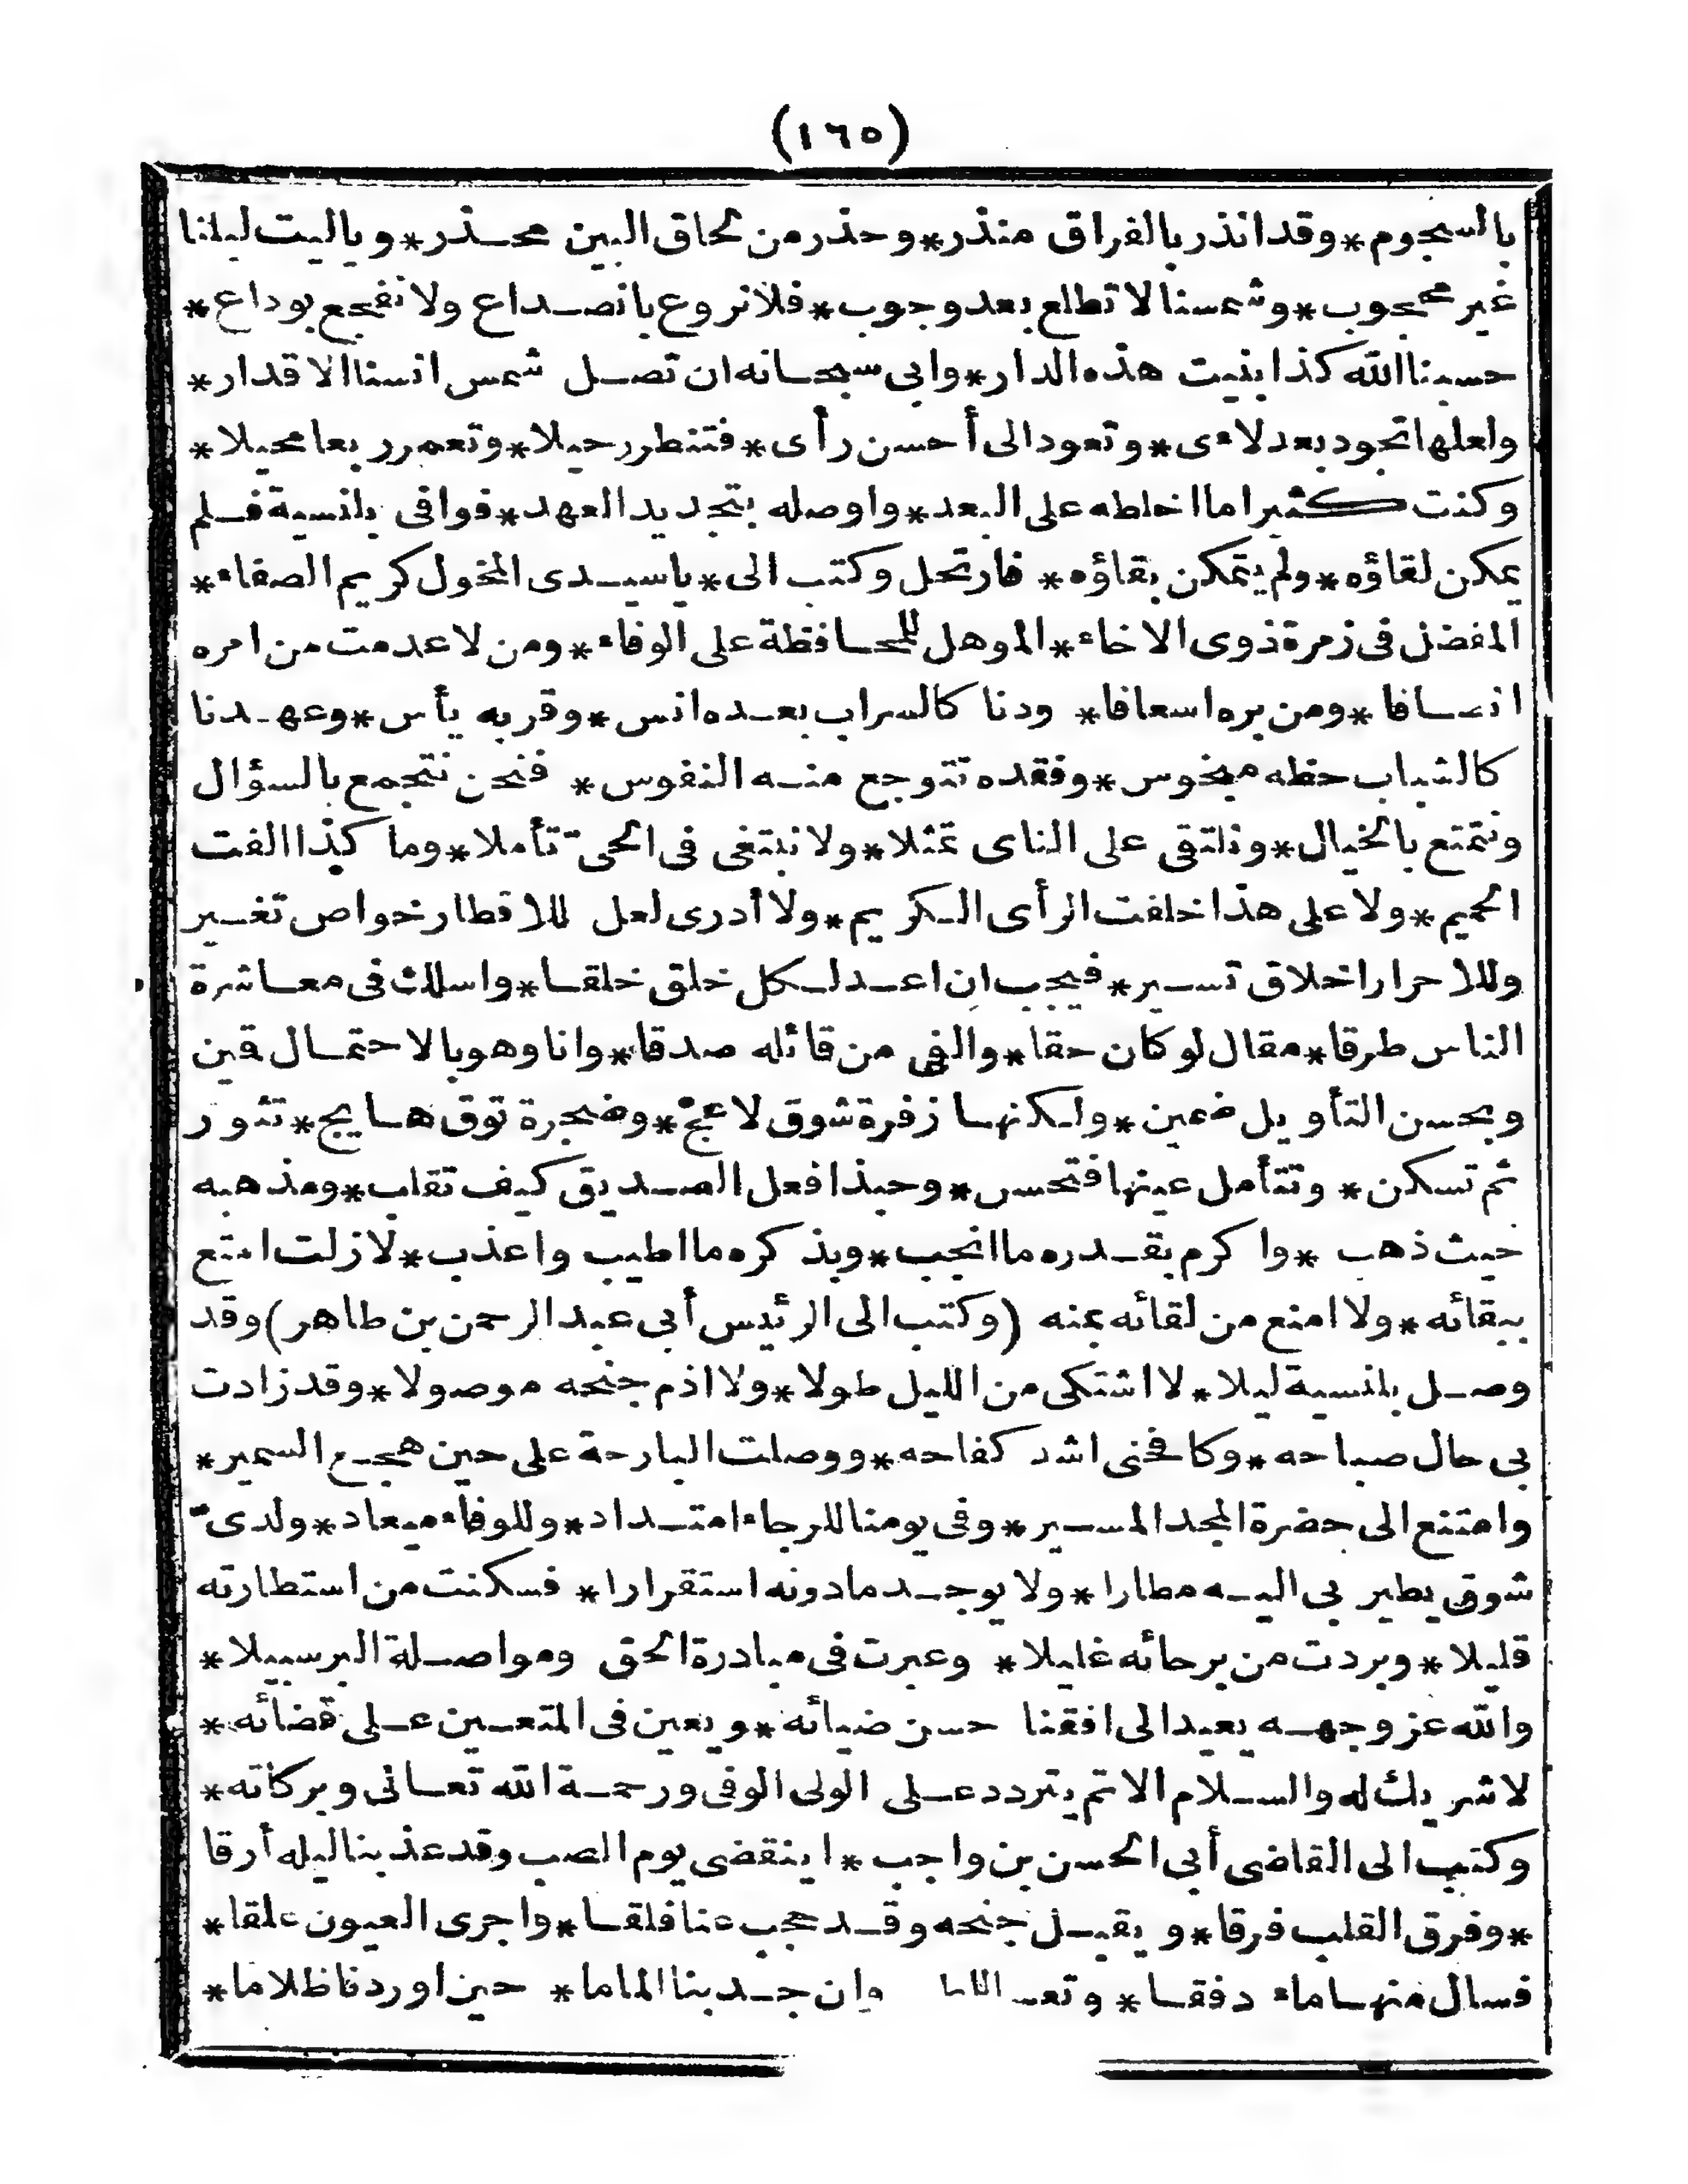 (١٦٥)
بالسجوم*وقد انذر بالفراق منذر*وحذر من لحاق البين محـذر*وياليت ليلنا
غير محجوب*وشمسنا لا تطلع بعد وجوب*فلا نروع بانصـداع ولا نفجع بوداع*
حسبنا الله كذا بنيت هذه الدار*وابى سبحـانه ان تصـل شمس انسنا الاقدار*
ولعلها تجود بعد لاءى*وتعود الى أحسن رأى*فتنطر رحيلا*وتعمر ربعا محيلا*
وكنت كثيرا ما اخاطه على البعد*واوصله بتجديد العهد*فوافى بلنسية فـلم
يمكن لقاؤه*ولم يتمكن بقاؤه* فارتحل وكتب الى*ياسيـدى المخول كريم الصفاء*
المفضل فى زمرة ذوى الاخاء*الموهل للمحـافظة على الوفاء*ومن لا عدمت من امره
انصـافا*ومن بره اسعافا* ودنا كالسراب بعـده انس*وقربه يأس*وعهـدنا
كالشباب حظه مبخوس*وفقده تتوجع منـه النفوس* فنحن نتجمع بالسؤال
ونتمتع بالخيال*ونلتقى على الناى تمثلا*ولا نبتغى فى الحىّ تأملا*وما كذا الفت
الحميم*ولا على هذا خلفت الرأى الـكريم*ولا أدرى لعل للاقطار خواص تغـير
وللاحرار اخلاق تسـير*فيجب ان اعـد لـكل خلق خلقـا*واسلك فى معـاشرة
الناس طرقا*مقال لو كان حقا*والفى من قائله صدقا*وانا وهو بالاحتمـال قمن
وبحسن التأويل ضمين*ولـكنهـا زفرة شوق لاعج*وضجرة توق هـايج*تثور
ثم تسكن* وتتأمل عينها فتحسن*وحبذا فعل الصـديق كيف تقلب*ومذهبه
حيث ذهب *واكرم بقـدره ما انجب*وبذكره ما اطيب واعذب*لازلت امتع
ببقائه*ولا امنع من لقائه بمنه (وكتب الى الرئيس أبى عبد الرحمن بن طاهر) وقد
وصـل بلنسية ليلا*لا اشتكى من الليل طولا*ولا اذم جنحه موصولا*وقد زادت
بى حال صباحه*وكافحنى اشد كفاحه*ووصلت البارحة على حين هجـع السمير*
وامتنع الى حضرة المجد المسـير*وفى يومنا للرجاء امتـداد*وللوفاء ميعاد*ولدىّ
شوق يطير بى اليـه مطارا*ولا يوجـد مادونه استقرارا* فسكنت من استطارته
قليلا*وبردت من برحائه غليلا* وعبرت فى مبادرة الحق ومواصـلة البر سبيلا*
والله عز وجهـه يعيد الى افقنا حسن ضيائه*ويعين فى المتعـين عـلى قضائه*
لا شريك له والسـلام الاتم يتردد عـلى الولى الوفى ورحمـة الله تعـالى وبركاته*
وكتب الى القاضى أبى الحسن بن واجب*اينقضى يوم الصب وقد عذبنا ليله أرقا
*وفرق القلب فرقا*ويقبـل جنحه وقـد حجب عنا فلقـا*واجرى العيون علقا*
فسال منهـا ماء دفقـا* وان جـد بنا الماما* حين اوردنا ظلاما*